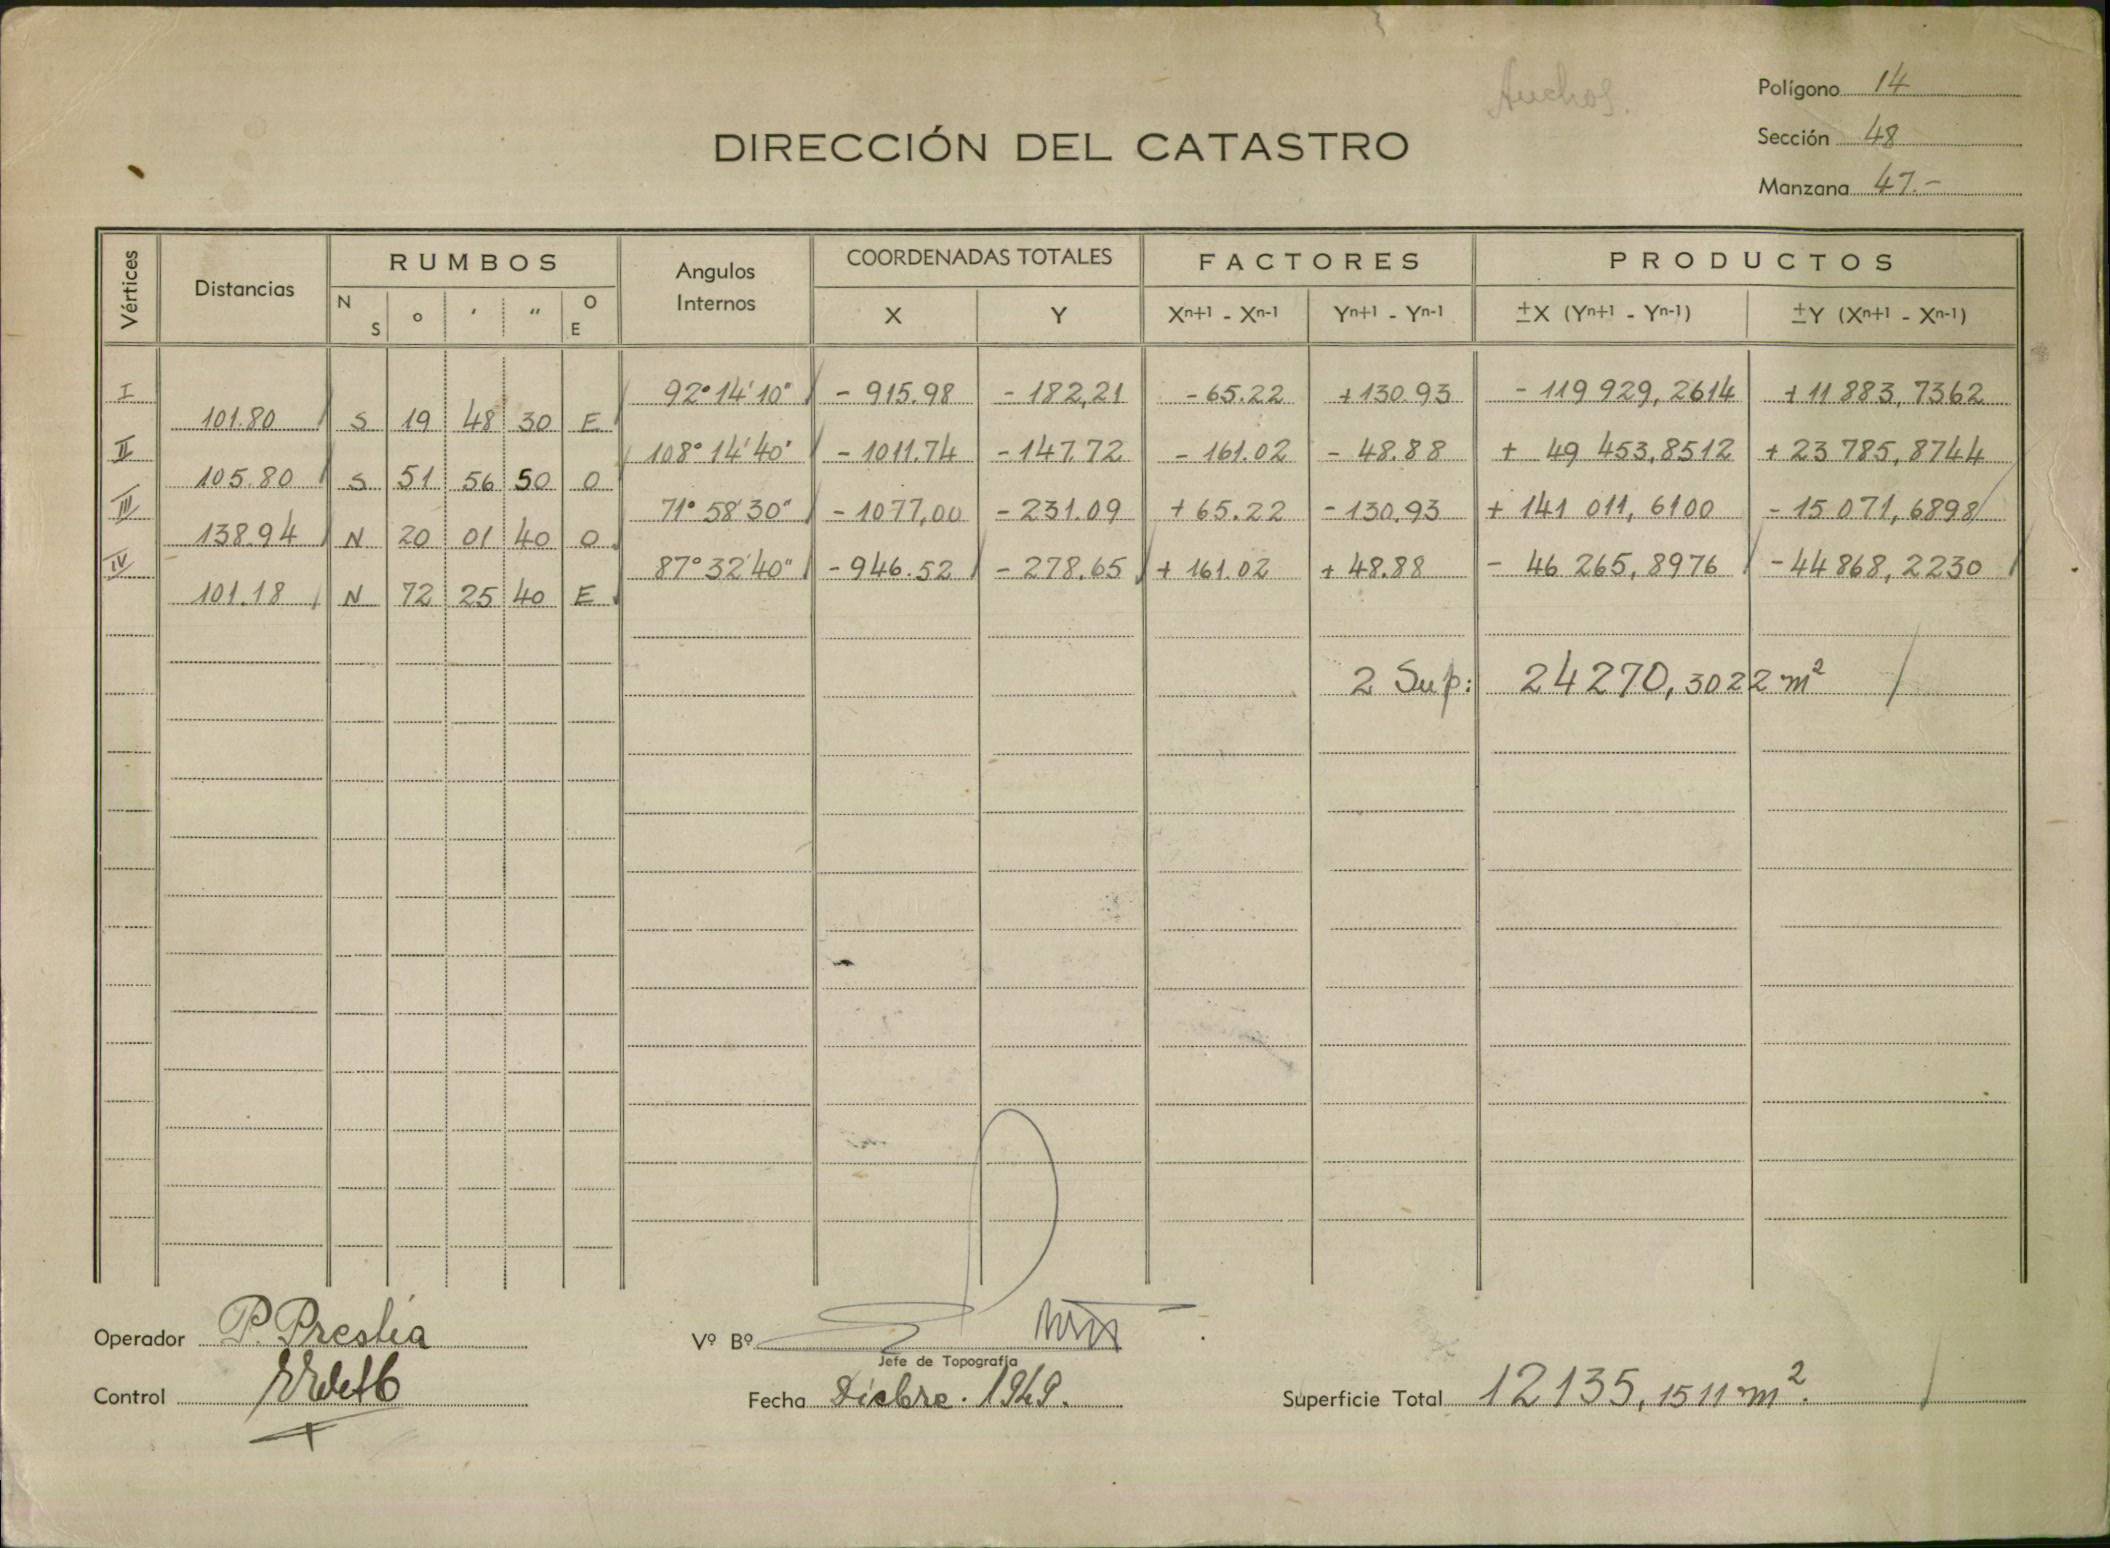 Polígono 14
DIRECCIÓN DEL CATASTRO
Sección 48
Manzana 47.-
Vértices Distancias RUMBOS Angulos Internos COORDENADAS TOTALES FACTORES PRODUCTOS
N S o ′ ″ O E X Y Xn+1 - Xn-1 Yn+1 - Yn-1 ±X (Yn+1 - Yn-1) ±Y (Xn+1 - Xn-1)
I 92° 14' 10" - 915.98 - 182,21 - 65.22 + 130.93 - 119 929, 2614 + 11 883, 7362
101.80 S 19 48 30 E
II 108° 14' 40" - 1011.74 - 147.72 - 161.02 - 48.88 + 49 453,8512 + 23 785, 8744
105.80 S 51 56 50 O
III 71° 58' 30" - 1077,00 - 231.09 + 65.22 - 130.93 + 141 011, 6100 - 15 071, 6898
138.94 N 20 01 40 O
IV 87° 32' 40" - 946.52 - 278.65 + 161.02 + 48.88 - 46 265, 8976 - 44 868, 2230
101.18 N 72 25 40 E
2 Sup: 24270, 3022 m²
Operador P. Preslia
Vº Bº
Jefe de Topografía
Control
Fecha Dicbre. 1949.
Superficie Total 12135, 1511 m².